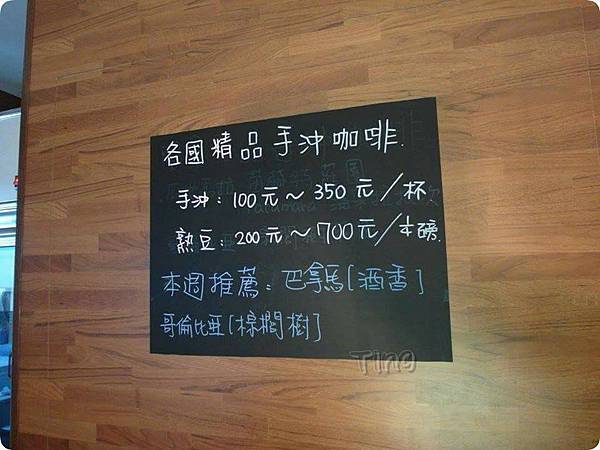 各國精品手沖咖啡.
手沖：100元～350元/杯
熟豆：200元～700元/半磅.
本週推薦：巴拿馬[酒香]
哥倫比亞[棕櫚樹]
Ting